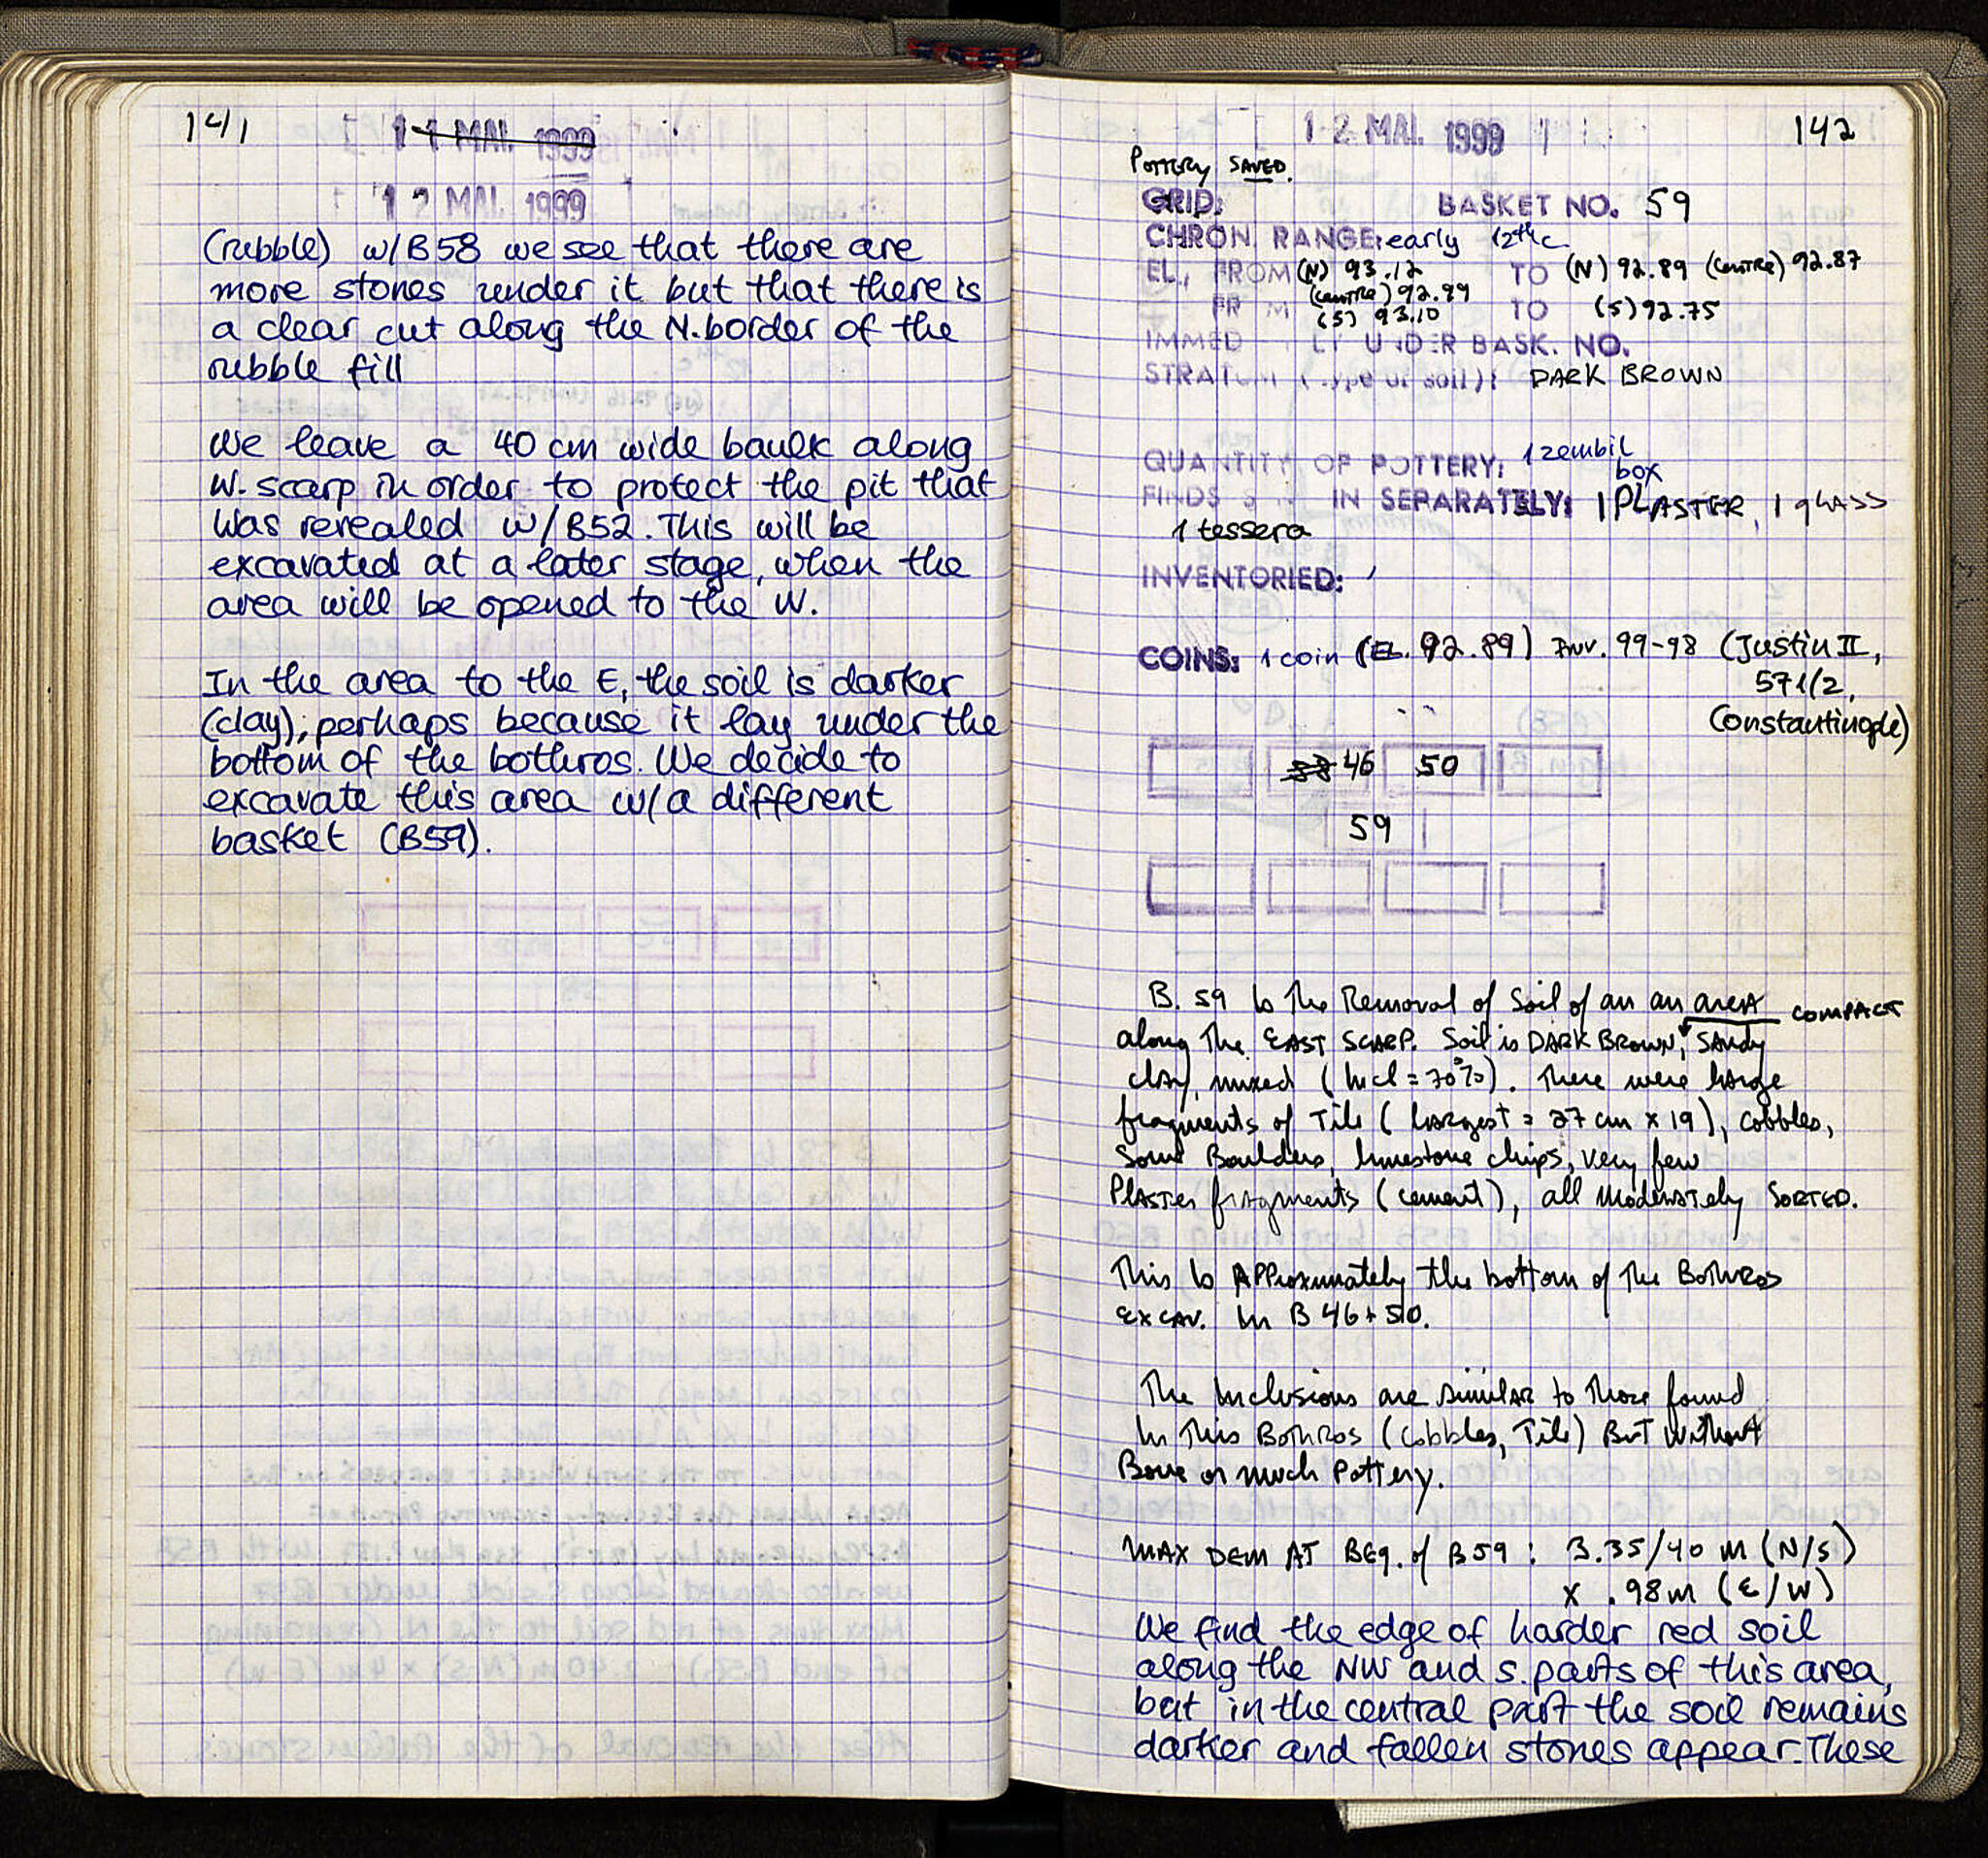 141
1 1 MAI. 1999
1 2 MAI. 1999
(rubble) w/B58 we see that there are
more stones under it but that there is
a clear cut along the N. border of the
rubble fill
We leave a 40 cm wide baulk along
W. scarp in order to protect the pit that
was revealed w/B52. This will be
excavated at a later stage, when the
area will be opened to the W.
In the area to the E, the soil is darker
(clay), perhaps because it lay under the
bottom of the bothros. We decide to
excavate this area w/a different
basket (B59).
1 2 MAI. 1999
142
Pottery SAVED.
GRID: BASKET NO. 59
CHRON RANGE: early 12th c.
EL., FROM (N) 93.12 TO (N) 92.89 (centre) 92.87
(centre) 92.99
FR M (S) 93.10 TO (S) 92.75
IMMED LY UNDER BASK. NO.
STRATUM (type of soil): DARK BROWN
QUANTITY OF POTTERY: 1 zembil
box
FINDS IN SEPARATELY: 1 PLASTER, 1 glass
1 tessera
INVENTORIED:
COINS: 1 coin (EL. 92.89) Inv. 99-98 (Justin II,
571/2,
Constantinople)
46 50
59
B. 59 is the Removal of Soil of an an area
COMPACT
along the EAST SCARP. Soil is DARK BROWN, SANDY
clay, mixed (incl = 70%). There were large
fragments of Tile (largest = 27 cm x 19), cobbles,
Some Boulders, limestone chips, very few
Plaster fragments (cement), all moderately SORTED.
This is Approximately the bottom of the Bothros
excav. in B 46 + 50.
The Inclusions are similar to those found
in this Bothros (cobbles, Tile) But without
Bone or much Pottery.
MAX DIM AT BEG. of B59 : 3.35/40 m (N/S)
x .98m (E/W)
We find the edge of harder red soil
along the NW and S. parts of this area,
but in the central part the soil remains
darker and fallen stones appear. These